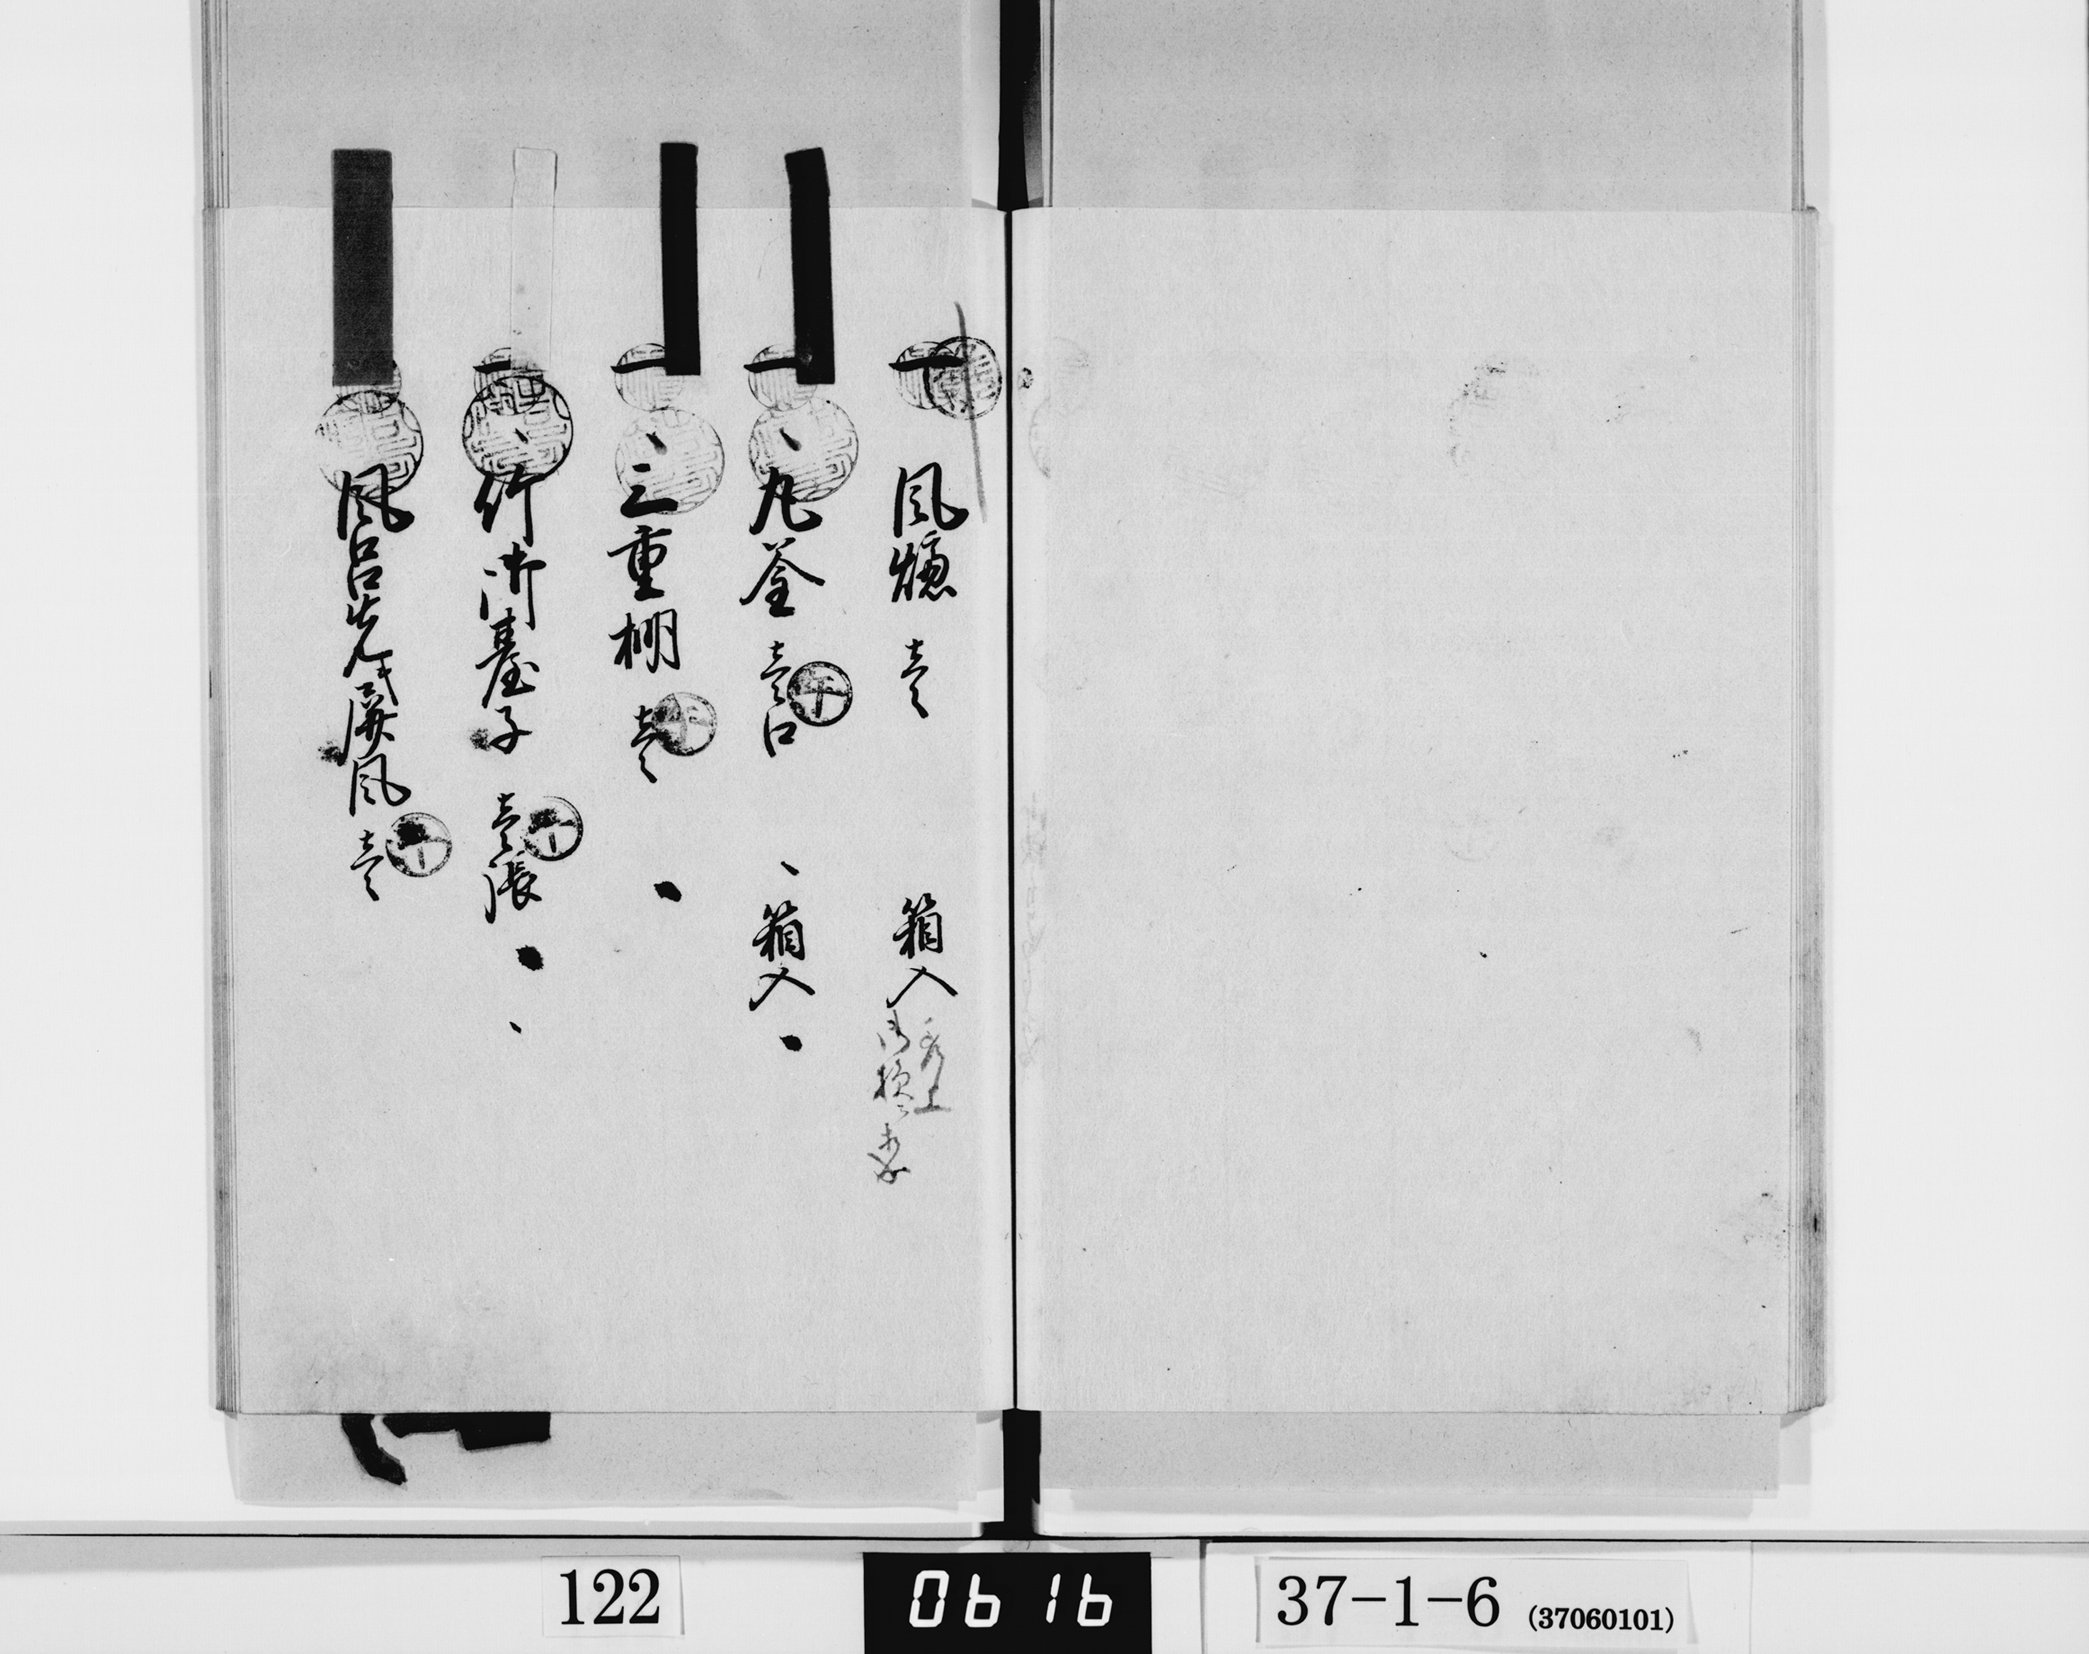 一 風爐 壱 箱入
一 丸釜 壱口 箱入
一 三重棚 壱
一 竹御臺子 壱張
風呂先屏風 壱
122
0616
37-1-6 (37060101)